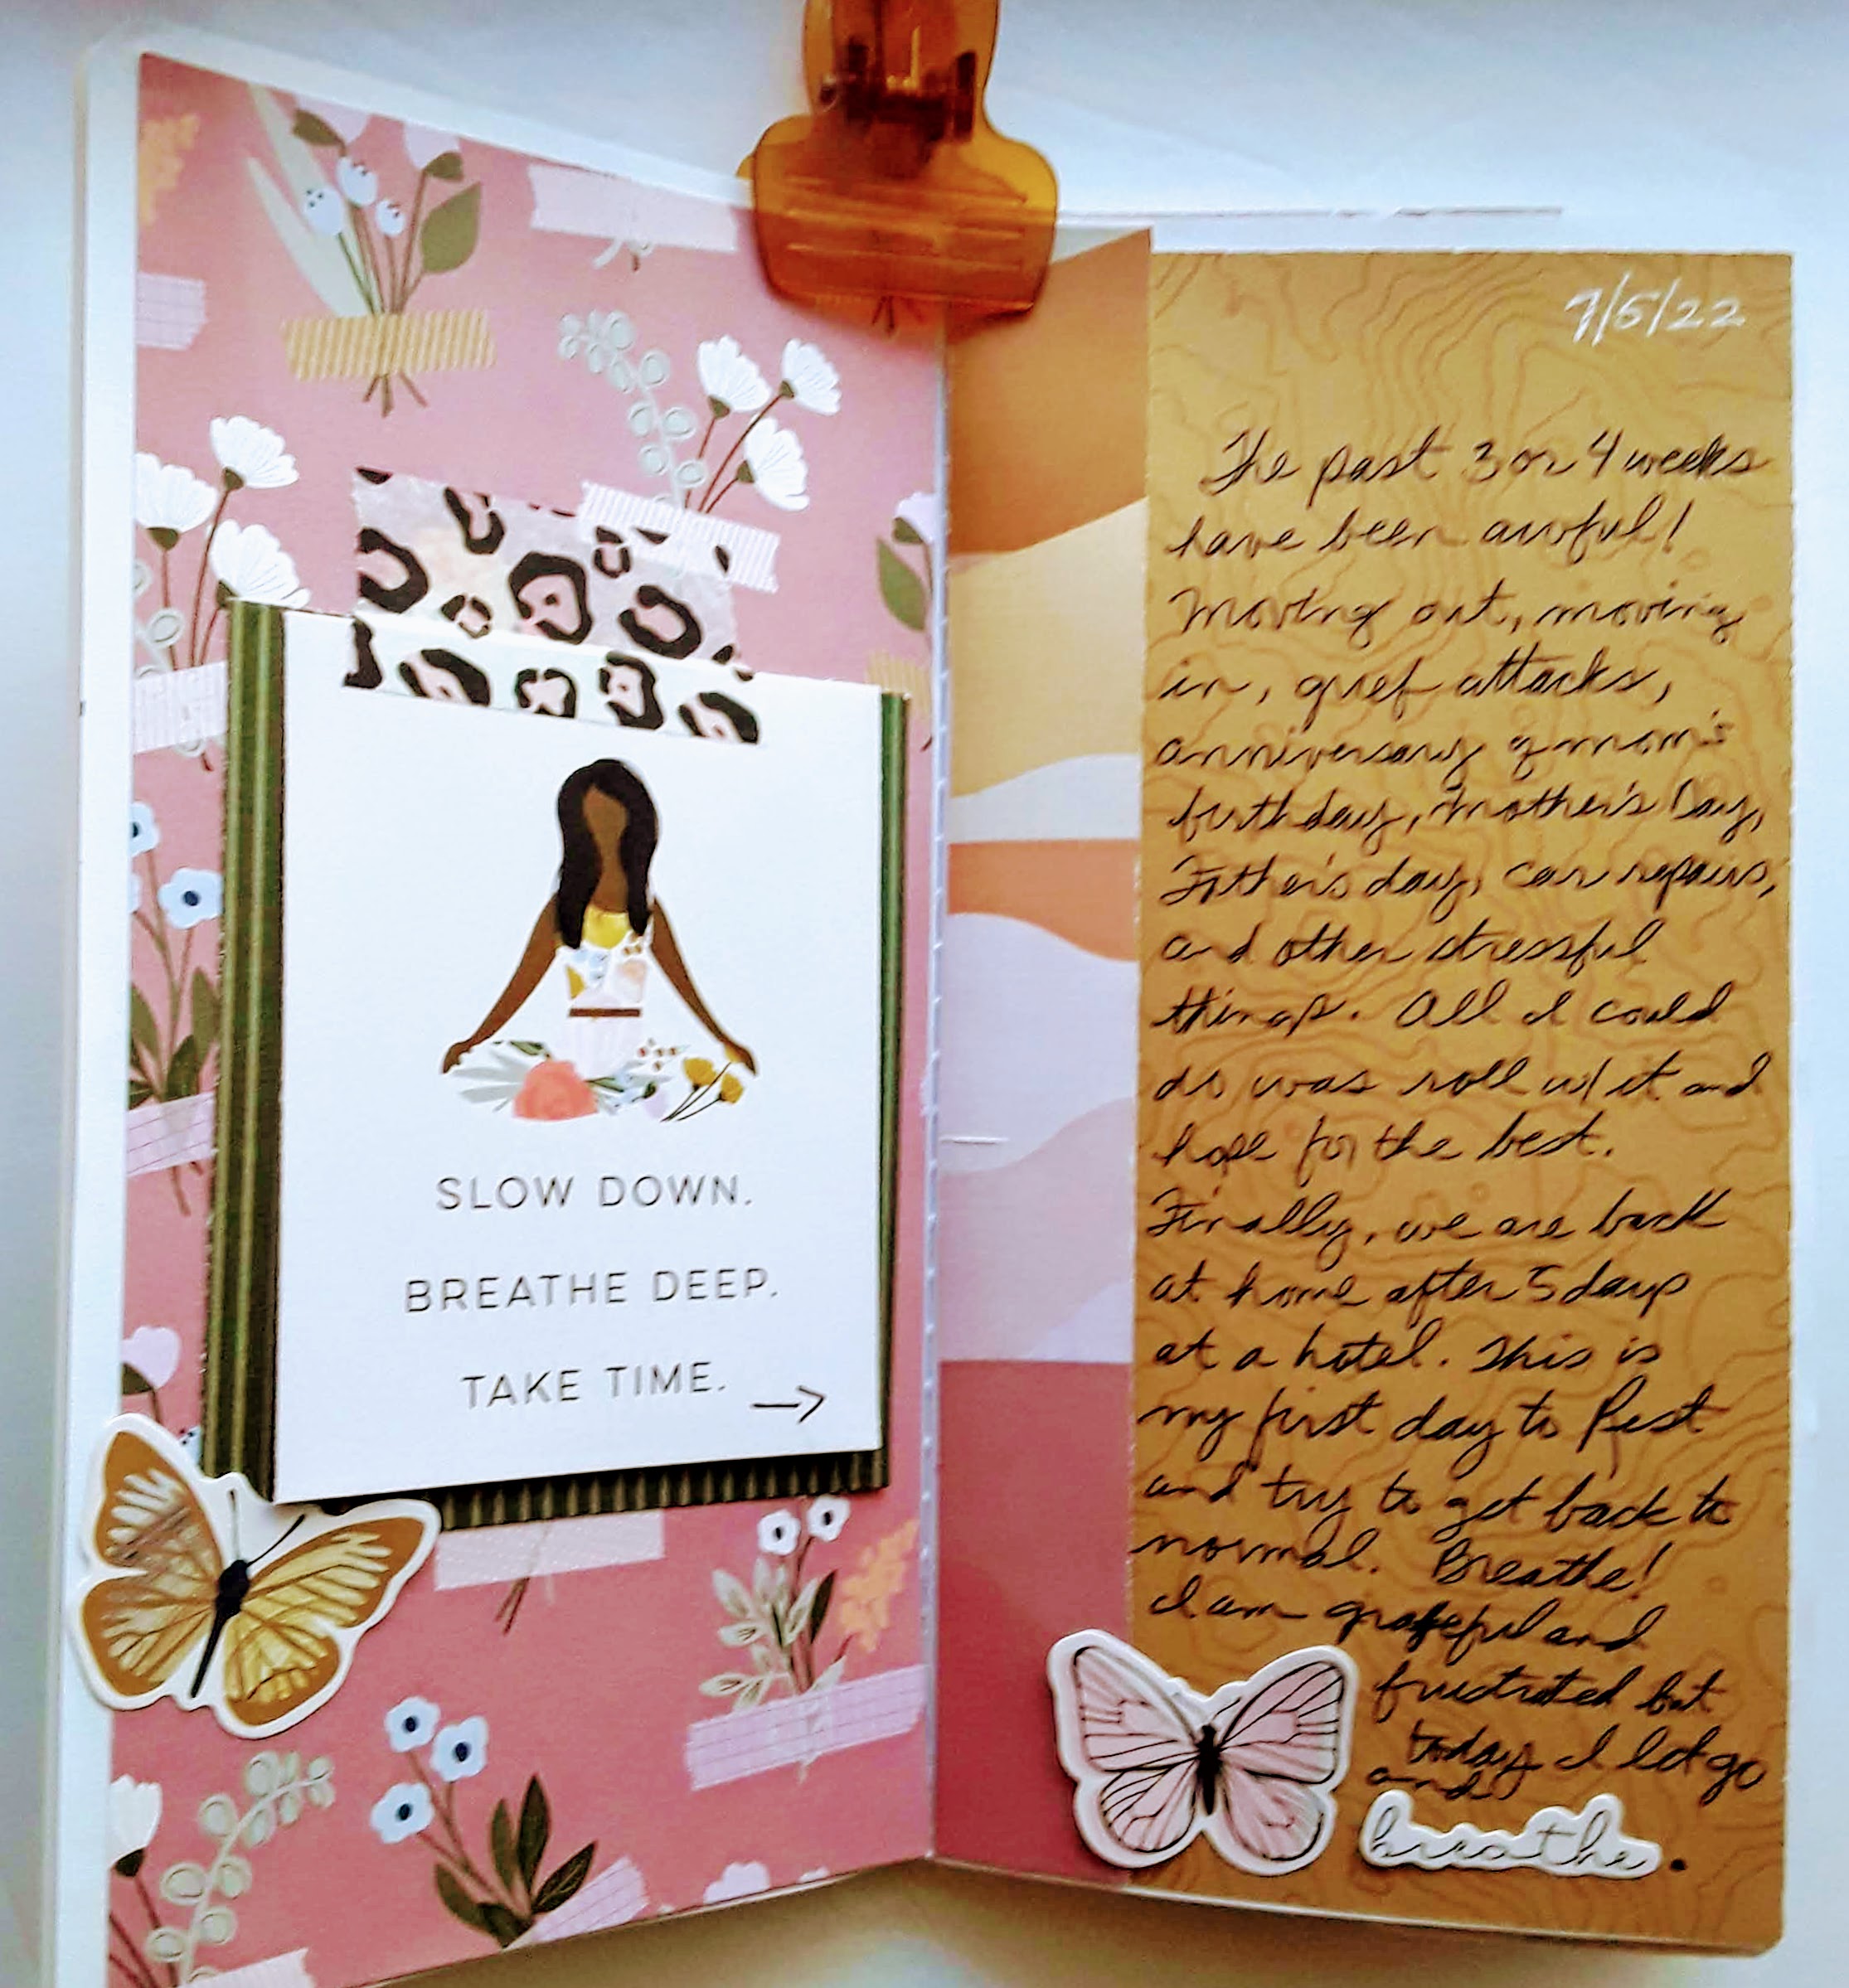 SLOW DOWN.
BREATHE DEEP.
TAKE TIME. →
7/5/22
The past 3 or 4 weeks
have been awful!
Moving out, moving
in, grief attacks,
anniversary of mom's
birthday, Mother's Day,
Father's day, car repairs,
and other stressful
things. All I could
do was roll w/ it and
hope for the best.
Finally, we are back
at home after 5 days
at a hotel. This is
my first day to Rest
and try to get back to
normal. Breathe!
I am grateful and
frustrated but
today I let go
and
breathe.